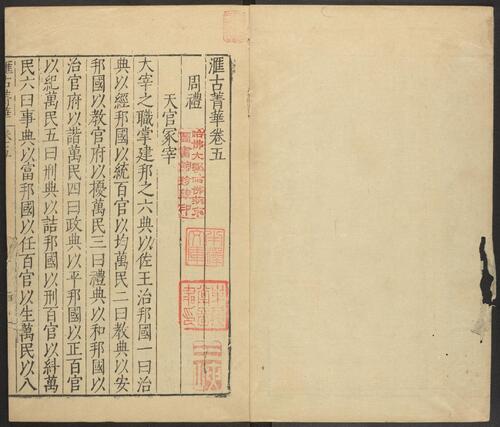 滙古菁華卷五
周禮
天官冢宰
大宰之職掌建邦之六典以佐王治邦國一曰治
典以經邦國以統百官以均萬民二曰教典以安
邦國以教官府以擾萬民三曰禮典以和邦國以
治官府以諧萬民四曰政典以平邦國以正百官
以紀萬民五曰刑典以詰邦國以刑百官以糾萬
民六曰事典以富邦國以任百官以生萬民以八
滙古菁華